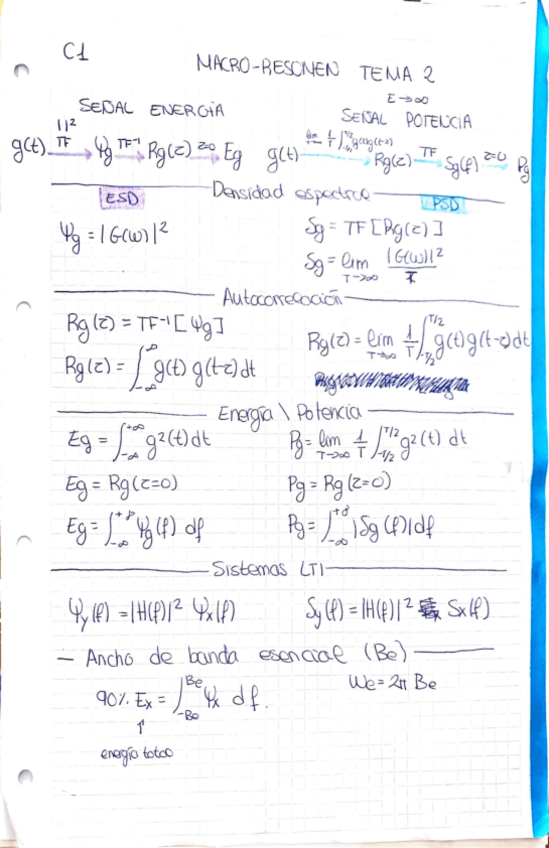 C1
MACRO-RESUMEN TEMA 2
SEÑAL ENERGÍA
E→∞
SEÑAL POTENCIA
g(t) —| |² TF→ Ψg —TF⁻¹→ Rg(z) —z=0→ Eg
g(t) —lim 1/T ∫_{-T/2}^{T/2} g(t)g(t-z)→ Rg(z) —TF→ Sg(f) —z=0→ Pg
Densidad espectral
ESD
PSD
Ψg = |G(ω)|²
Sg = TF [Rg(z)]
Sg = lim_{T→∞} |G(ω)|² / T
Autocorrelación
Rg(z) = TF⁻¹ [Ψg]
Rg(z) = ∫_{-∞}^{∞} g(t) g(t-z) dt
Rg(z) = lim_{T→∞} 1/T ∫_{-T/2}^{T/2} g(t) g(t-z) dt
Energía \ Potencia
Eg = ∫_{-∞}^{+∞} g²(t) dt
Pg = lim_{T→∞} 1/T ∫_{-T/2}^{T/2} g²(t) dt
Eg = Rg(z=0)
Pg = Rg(z=0)
Eg = ∫_{-∞}^{+∞} Ψg(f) df
Pg = ∫_{-∞}^{+∞} |Sg(f)| df
Sistemas LTI
Ψy(f) = |H(f)|² Ψx(f)
Sy(f) = |H(f)|² Sx(f)
— Ancho de banda esencial (Be)
90% Ex = ∫_{-Be}^{Be} Ψx df.
We = 2π Be
↑
energía total